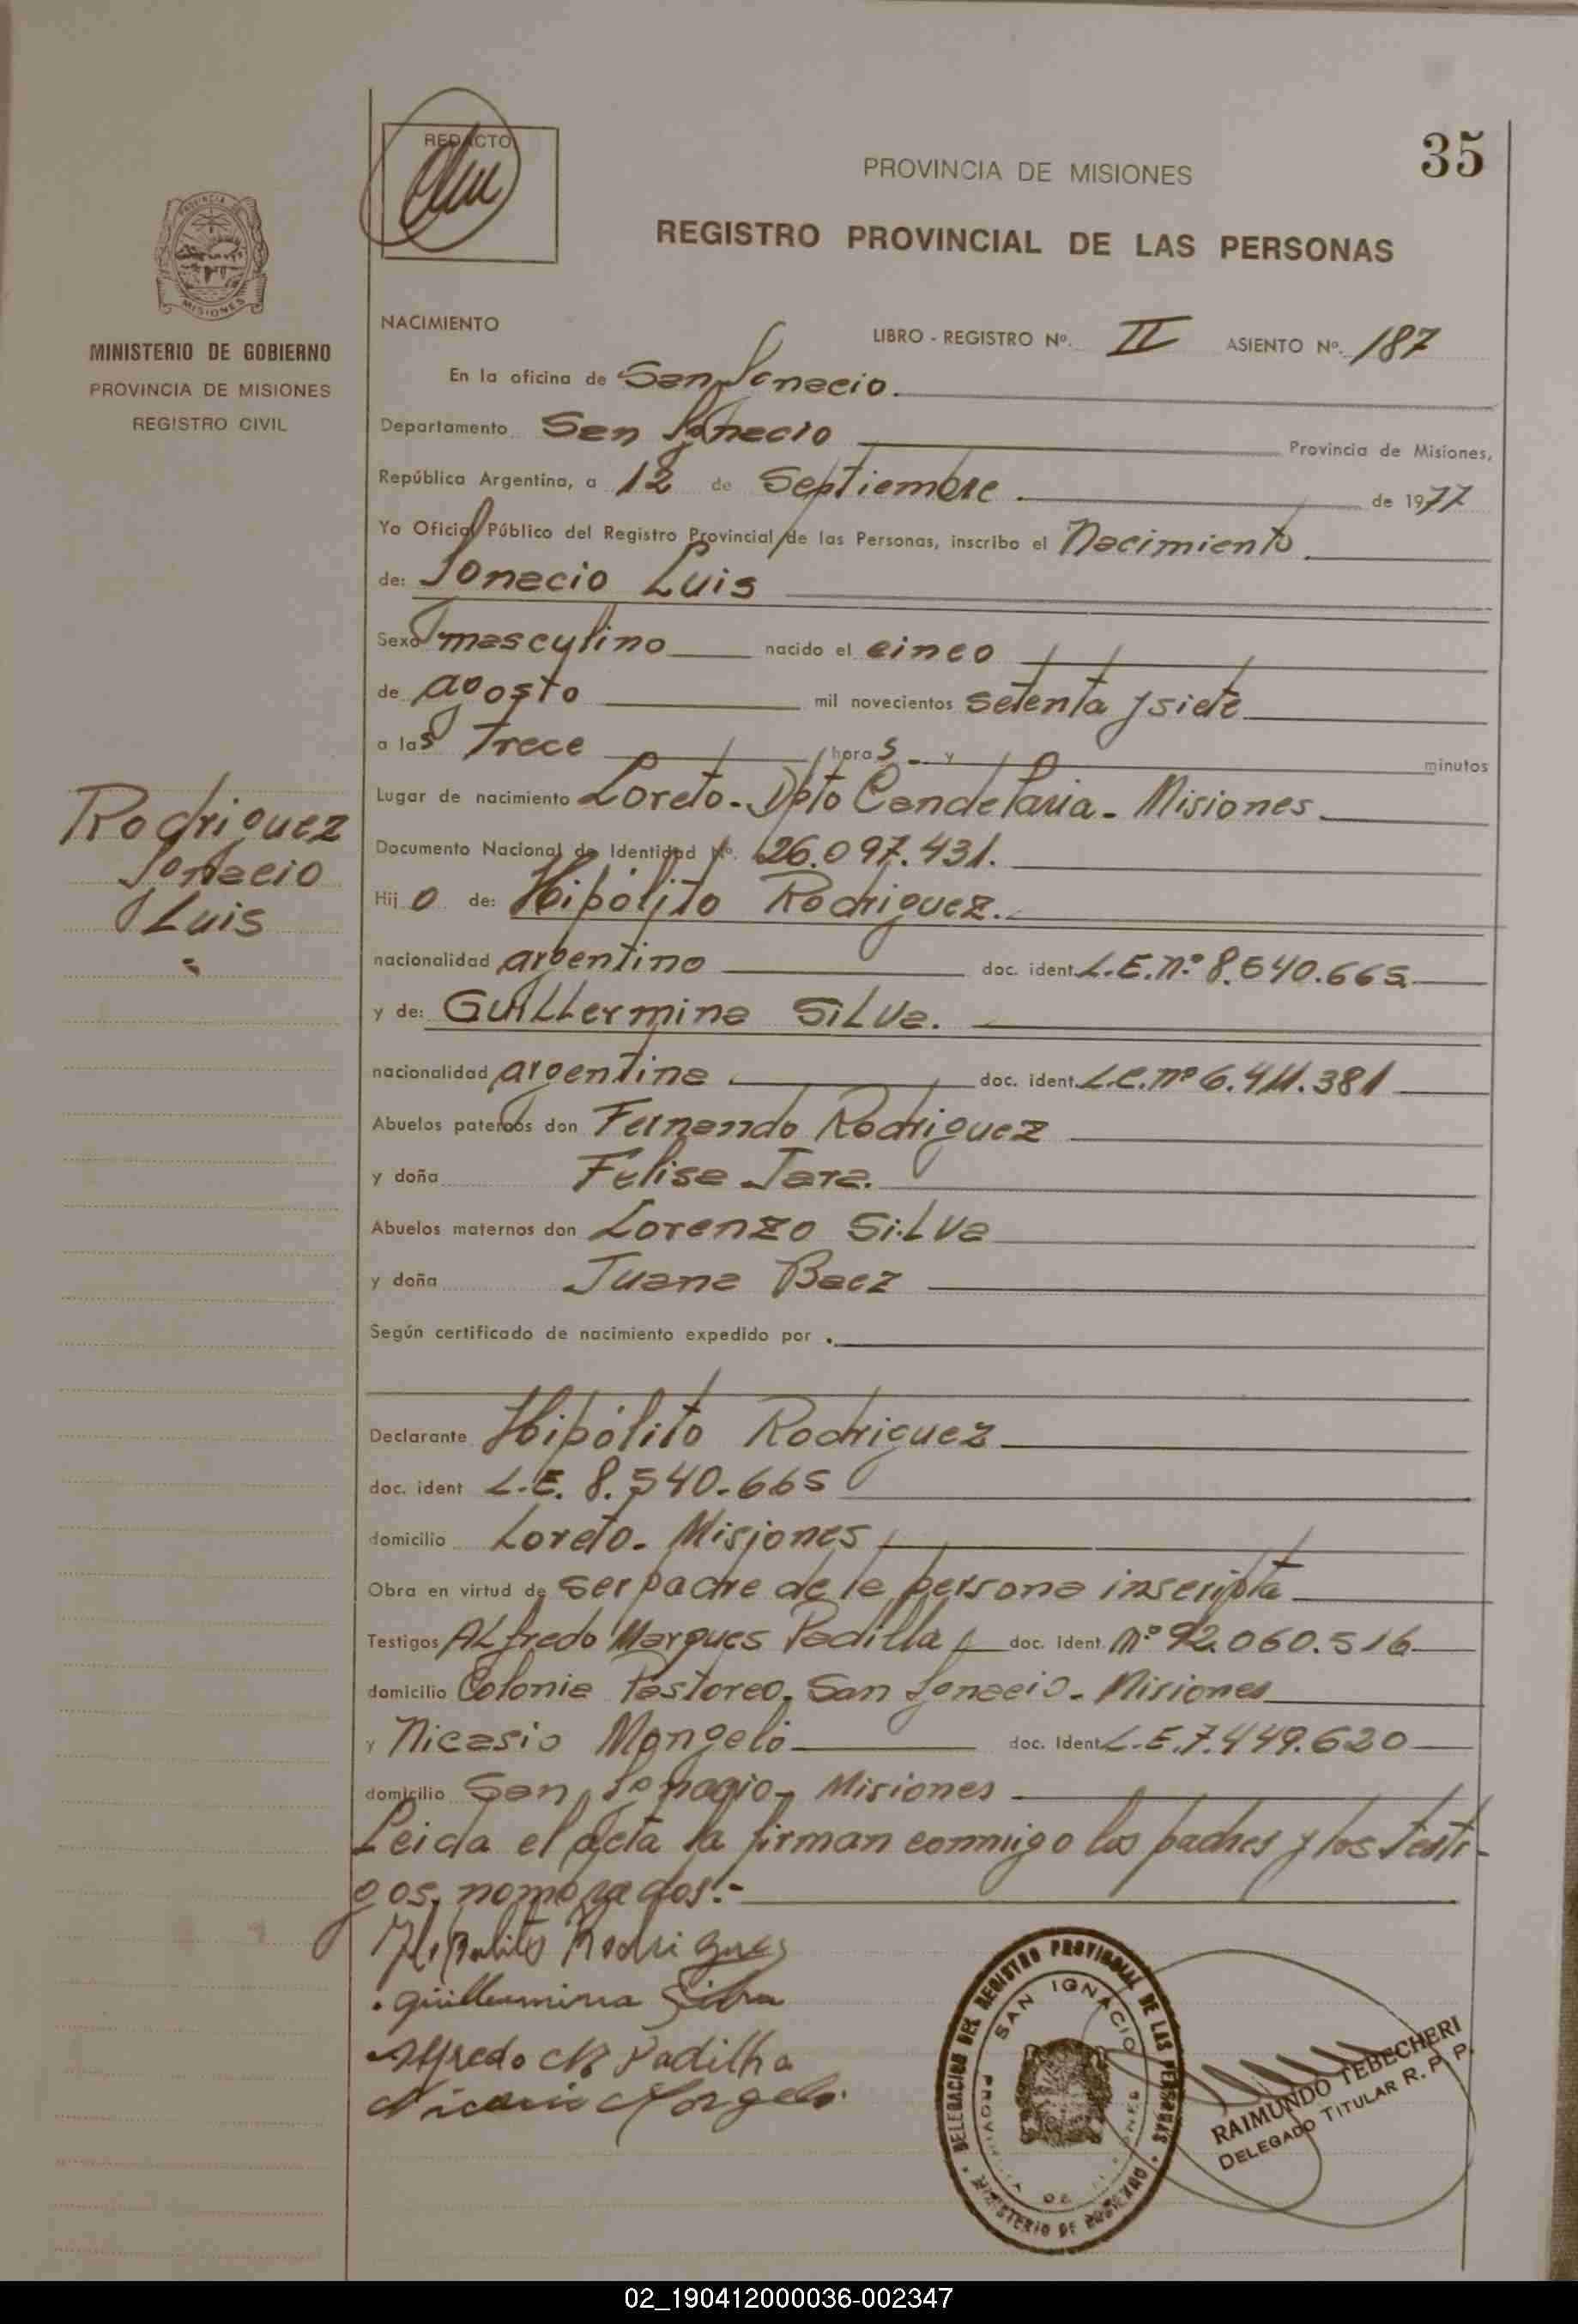 REDACTO
35
PROVINCIA DE MISIONES
REGISTRO PROVINCIAL DE LAS PERSONAS
PROVINCIA DE
MISIONES
MINISTERIO DE GOBIERNO
PROVINCIA DE MISIONES
REGISTRO CIVIL
NACIMIENTO
LIBRO - REGISTRO Nº. II ASIENTO Nº. 187
En la oficina de San Ignacio.
Departamento San Ignacio Provincia de Misiones,
República Argentina, a 12 de Septiembre de 1977
Yo Oficial Público del Registro Provincial de las Personas, inscribo el Nacimiento
de: Ignacio Luis
Sexo masculino nacido el cinco
de agosto mil novecientos setenta y siete
a las trece horas y minutos
Lugar de nacimiento Loreto - Dpto Candelaria - Misiones
Rodriguez
Ignacio
Luis
Documento Nacional de Identidad Nº. 26.097.431.
Hijo de: Hipólito Rodriguez.
nacionalidad argentino doc. ident. L.E. nº 8.540.665
y de: Guillermina Silva.
nacionalidad argentina doc. ident. L.C. nº 6.411.381
Abuelos paternos don Fernando Rodriguez
y doña Felisa Jara.
Abuelos maternos don Lorenzo Silva
y doña Juana Baez
Según certificado de nacimiento expedido por .
Declarante Hipólito Rodriguez
doc. ident L.E. 8.540.665
domicilio Loreto - Misiones
Obra en virtud de ser padre de la persona inscripta
Testigos Alfredo Marques Padilla doc. Ident. nº 92.060.516
domicilio Colonia Pastoreo, San Ignacio - Misiones
y Nicasio Mongeló doc. Ident. L.E. 7.449.620
domicilio San Ignacio - Misiones
Leida el acta la firman conmigo los padres y los testi-
gos nombrados.-
Hipolito Rodriguez
guillermina Silva
Alfredo M Padilha
Nicasio Mongelo
DELEGACION DEL REGISTRO PROVINCIAL DE LAS PERSONAS
MINISTERIO DE GOBIERNO
SAN IGNACIO
PROVINCIA DE MISIONES
RAIMUNDO TEBECHERI
DELEGADO TITULAR R. P. P.
02_190412000036-002347